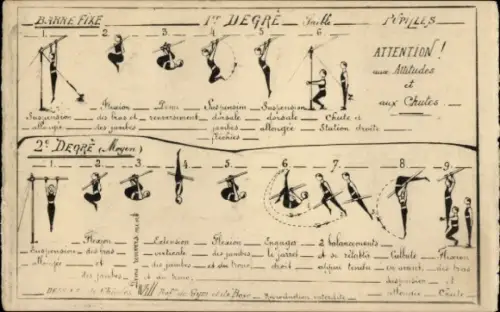 BARRE FIXE 1er DEGRÈ Faible PUPILLES
1. 2. 3. 4. 5. 6
ATTENTION!
aux Attitudes
et
aux Chutes.
Suspension Flexion Demi Suspension Suspension Chute et
allongée des bras et renversement dorsale dorsale Station droite
des jambes jambes allongée
fléchies
2e DEGRÈ (Moyen)
1. 2. 3. 4. 5. 6. 7. 8. 9.
Suspension Flexion Extension Flexion Engager 2 balancements Culbute Flexion
allongée des bras verticale des jambes le jarret et se rétablir en avant des bras
et des jambes et du tronc droit appui tendu suspension et
des jambes et du tronc allongée Chute
Will Prof. de Gym Reproduction interdite